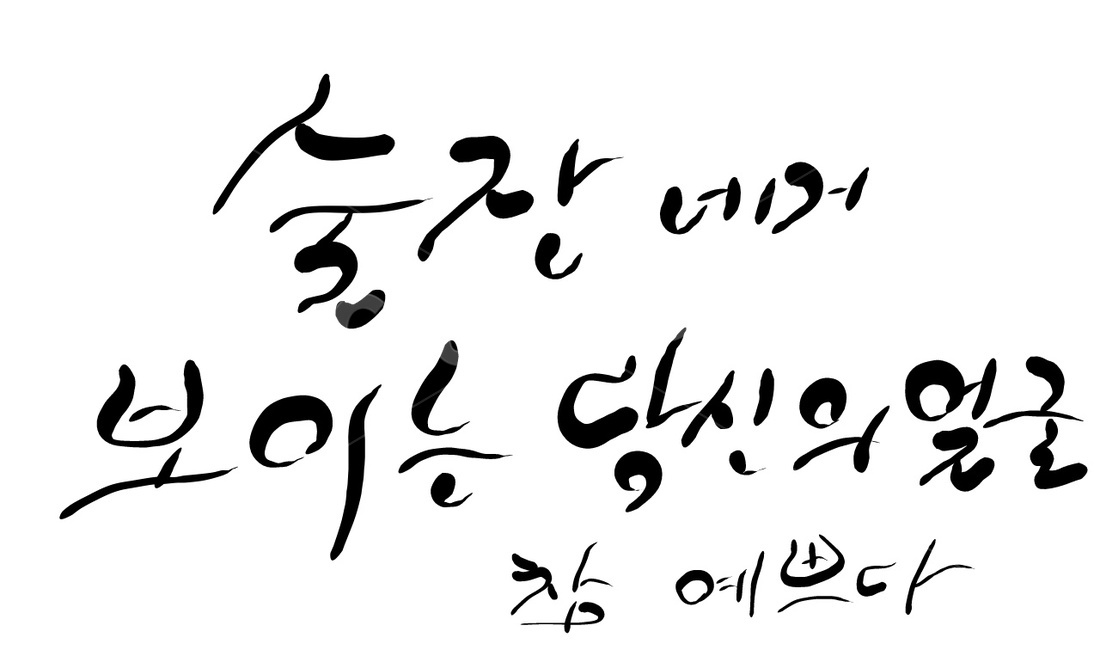 술잔 너머
보이는 당신의 얼굴
참 예쁘다